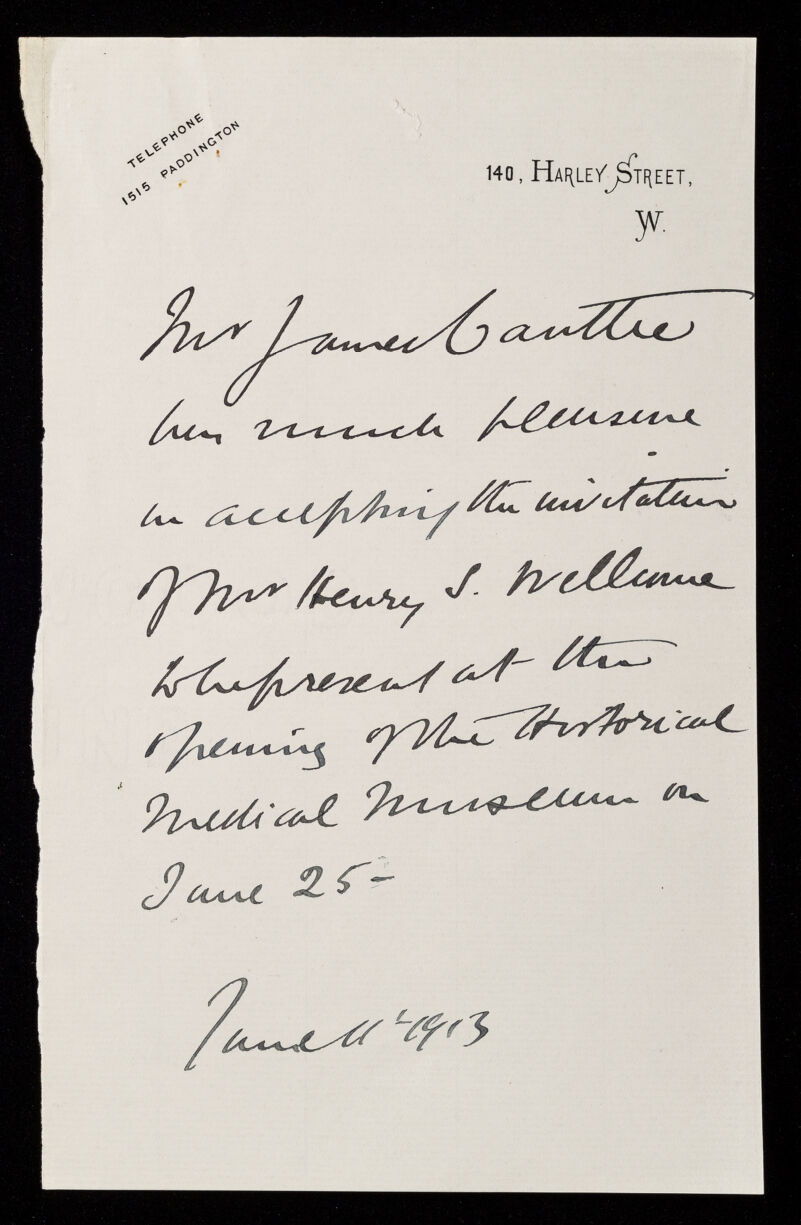 TELEPHONE
1515 PADDINGTON
140, HARLEY STREET,
W.
Mr James Cantlie
has much pleasure
in accepting the invitation
of Mr Henry S. Wellcome
to be present at the
opening of the Historical
Medical Museum on
June 25-
June 11th 1913